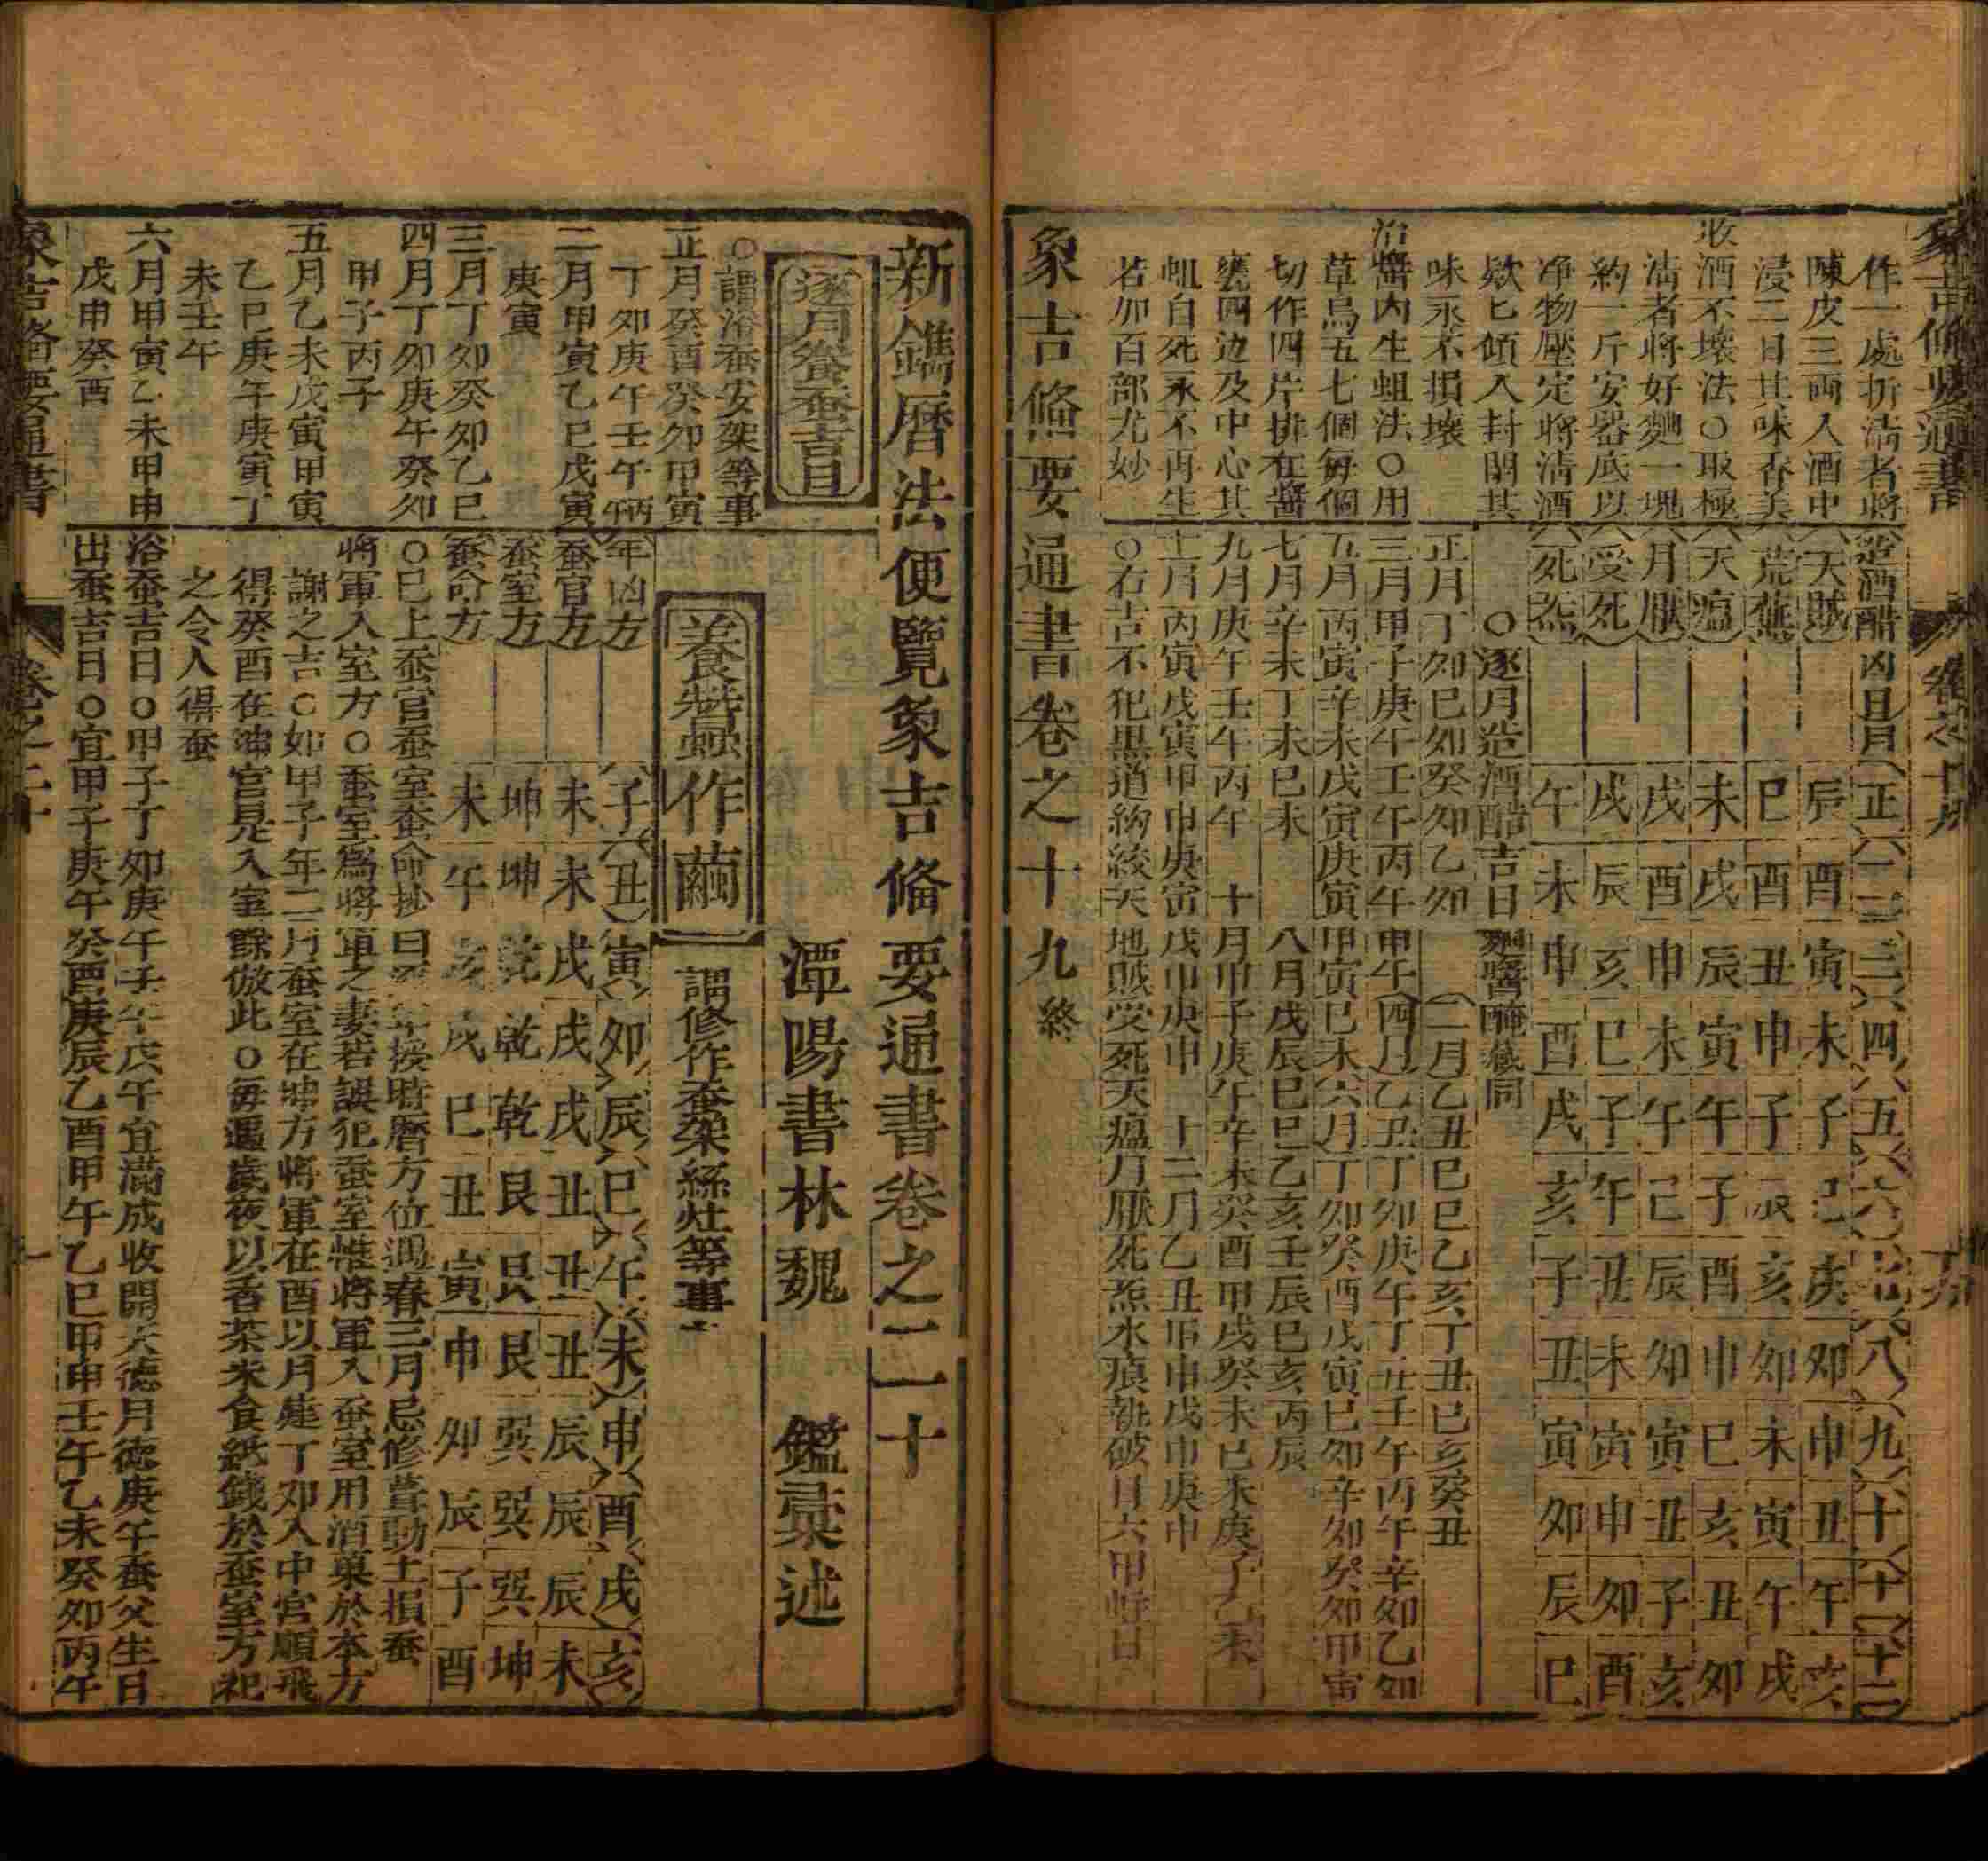 作一處折清者將
陳皮三両入酒中
浸二日其味香美
收酒不壞法○取極
清者將好麵一塊
約一斤安器底以
净物壓定將清酒
欵匕傾入封閉其
味永不損壞
治醬内生蛆法○用
草烏五七個每個
切作四片排在醬
甕四边及中心其
蛆自死永不再生
若夘百部尤妙
造酒醋凶日月 正 二 三 四 五 六 七 八 九 十 十一 十二
天賊 辰 酉 寅 未 子 巳 戌 夘 申 丑 午 亥
荒蕪 巳 酉 丑 申 子 辰 亥 夘 未 寅 午 戌
天瘟 未 戌 辰 寅 午 子 酉 申 巳 亥 丑 夘
月厭 戌 酉 申 未 午 巳 辰 夘 寅 丑 子 亥
受死 戌 辰 亥 巳 子 午 丑 未 寅 申 夘 酉
死炁 午 未 申 酉 戌 亥 子 丑 寅 夘 辰 巳
○逐月造酒醋吉日 醬醃藏同
正月丁夘己夘癸夘乙夘 二月乙丑己巳乙亥丁丑己亥癸丑
三月甲子庚午壬午丙午甲午 四月乙丑丁夘庚午丁丑壬午丙午辛夘乙夘
五月丙寅辛未戊寅庚寅甲寅己未 六月丁夘癸酉戊寅己夘辛夘癸夘甲寅
七月辛未丁未己未 八月戊辰己巳乙亥壬辰己亥丙辰
九月庚午壬午丙午 十月甲子庚午辛未癸酉甲戌癸未己未庚子乙未
十一月丙寅戊寅甲申庚寅戊申庚申 十二月乙丑丙申戊申庚申
○右吉不犯黒道約絞天地賊受死天瘟月厭死炁水痕執破日六甲
象吉俻要通書卷之十九終
新鐫暦法便覽象吉俻要通書卷之二十
潭陽書林魏 鑑彙述
逐月養蚕吉日
○謂浴蚕安架等事
正月癸酉癸夘甲寅
丁夘庚午壬午丙
二月甲寅乙巳戊寅
庚寅
三月丁夘癸夘乙巳
四月丁夘庚午癸夘
甲子丙子
五月乙未戊寅甲寅
乙巳庚午庚寅丁
未壬午
六月甲寅乙未甲申
戊申癸酉
養蚕作繭 謂修作蚕架絲灶等事
年凶方 子 丑 寅 夘 辰 巳 午 未 申 酉 戌 亥
蚕官方 未 未 戌 戌 戌 丑 丑 丑 辰 辰 辰 未
蚕室方 坤 坤 乾 乾 乾 艮 艮 艮 巽 巽 巽 坤
蚕命方 未 午 亥 戌 巳 丑 寅 申 夘 辰 子 酉
○已上蚕官蚕室蚕命抄曰年授時暦方位遇春三月忌修葺動土損蚕
將軍入室方○蚕室爲將軍之妻若誤犯蚕室惟將軍入蚕室用酒菓於本方
謝之吉○如甲子年二月蚕室在坤方將軍在酉以月建丁夘入中宮順飛
得癸酉在坤宮是入室餘倣此○毎遇歲夜以香茶米食紙錢於蚕室方祀
之令人得蚕
浴蚕吉日○甲子丁夘庚午壬午戊午宜滿成收開天德月德庚午蚕父生日
出蚕吉日○宜甲子庚午癸酉庚辰乙酉甲午乙巳甲申壬午乙未癸夘丙午
象吉俻要通書
卷之二十